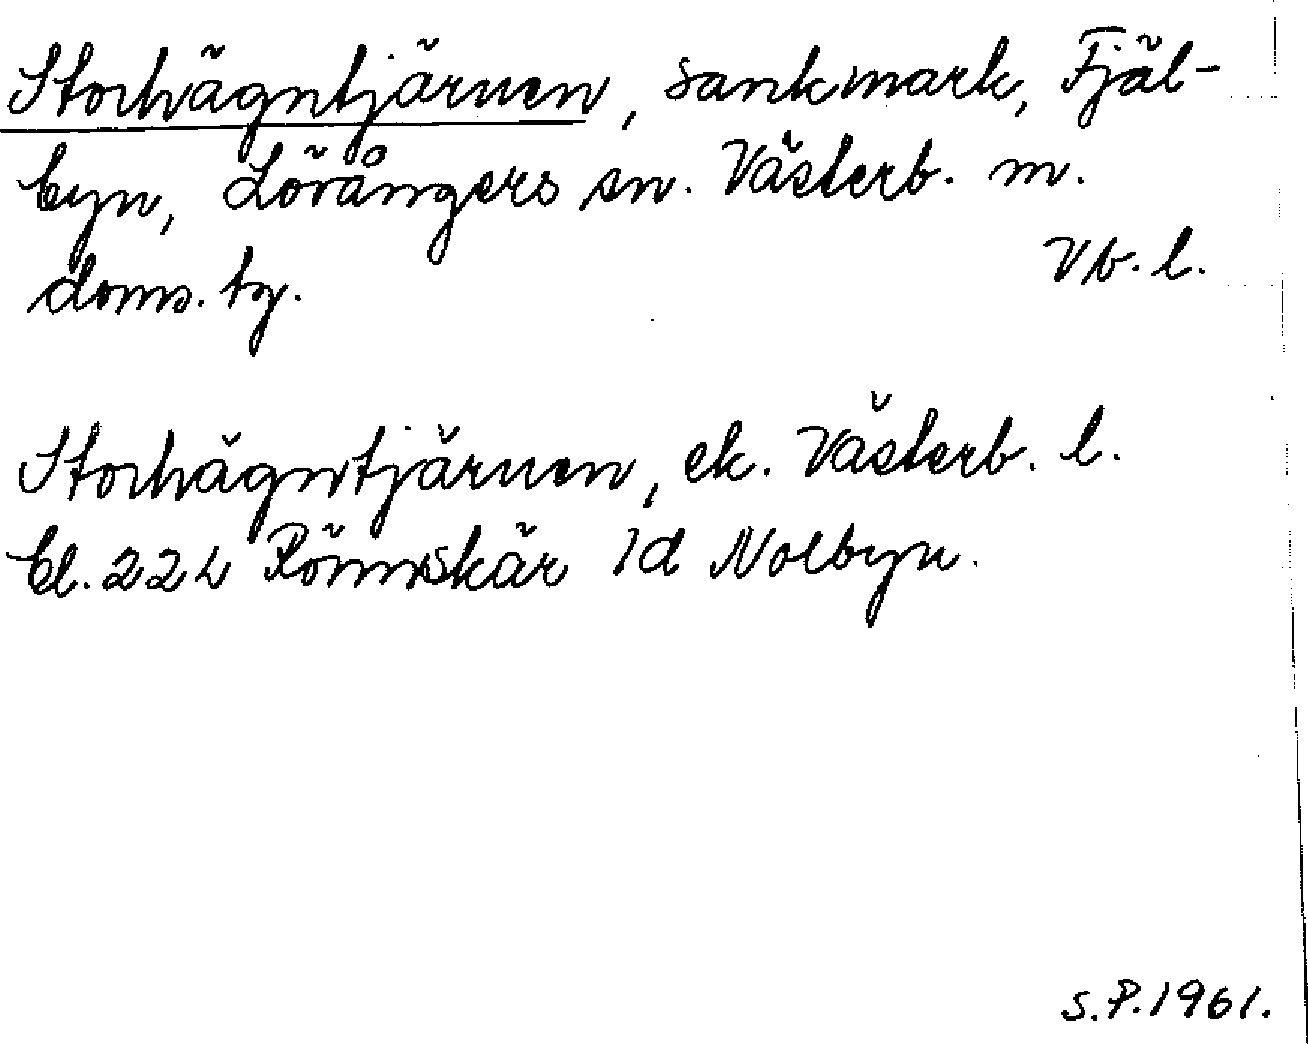 Storhägntjärnen, sankmark, Fjäl-
byn, Lövångers sn. Västerb. m.
doms. tg. Vb. l.
Storhägntjärnen, ek. Västerb. l.
bl. 22L Rönnskär 1d Nolbyn.
S.P. 1961.